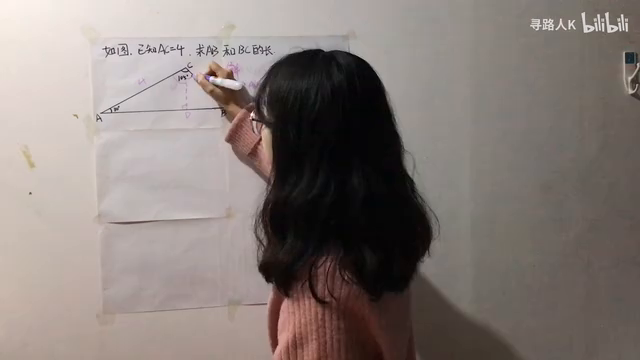 寻路人K bilibili
如图,已知AC=4,求AB和BC的长
C
4
105°
A
30°
D
B